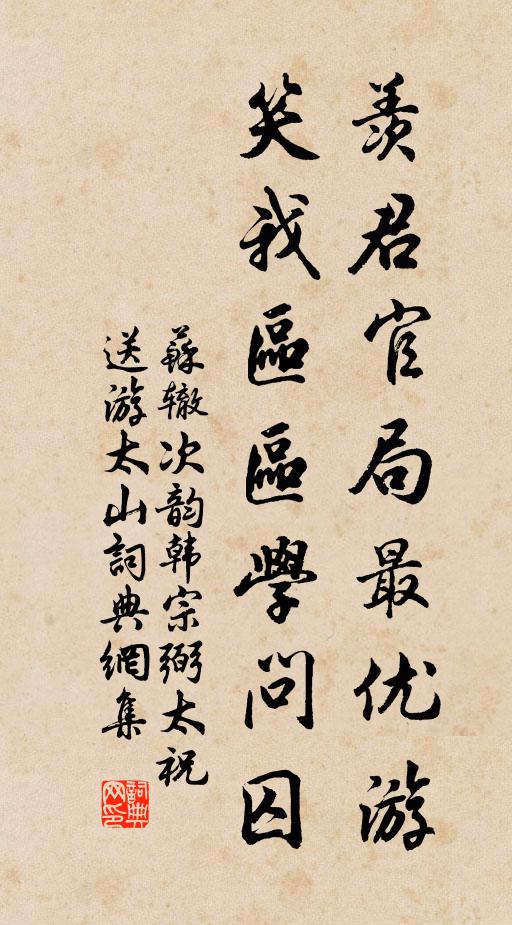 羨君官局最优游
笑我區區學問囚
蘇辙次韵韩宗弼太祝
送游太山詞典網集
詞典网印